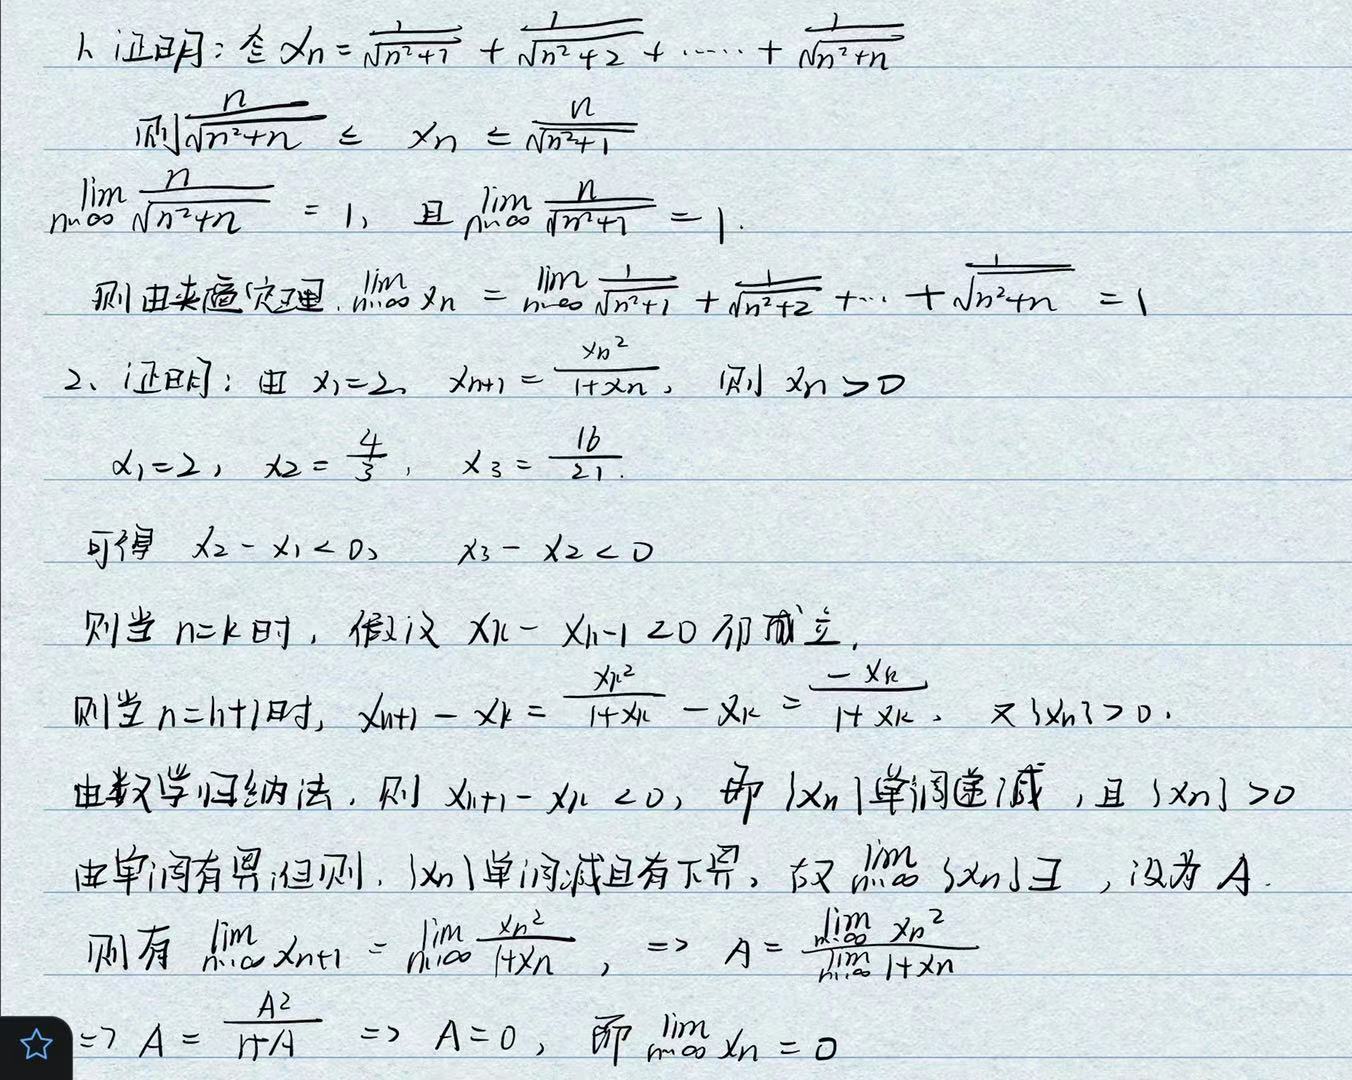 1、证明：令 xn = 1/√(n²+1) + 1/√(n²+2) + …… + 1/√(n²+n)
则 n/√(n²+n) ≤ xn ≤ n/√(n²+1)
lim n→∞ n/√(n²+n) = 1, 且 lim n→∞ n/√(n²+1) = 1.
则由夹逼定理. lim n→∞ xn = lim n→∞ 1/√(n²+1) + 1/√(n²+2) + … + 1/√(n²+n) = 1
2、证明：由 x1=2、 xn+1 = xn²/(1+xn), 则 xn > 0
x1=2, x2 = 4/3, x3 = 16/21.
可得 x2 - x1 < 0、 x3 - x2 < 0
则当 n=k 时, 假设 xk - xk-1 < 0 都成立.
则当 n=k+1 时, xk+1 - xk = xk²/(1+xk) - xk = -xk/(1+xk). 又{xn}>0.
由数学归纳法. 则 xk+1 - xk < 0, 即{xn}单调递减, 且{xn}>0
由单调有界准则. {xn}单调减且有下界. 故 lim n→∞ {xn}∃, 设为 A.
则有 lim n→∞ xn+1 = lim n→∞ xn²/(1+xn), => A = lim n→∞ xn² / lim n→∞ 1+xn
=> A = A²/(1+A) => A=0, 即 lim n→∞ xn = 0